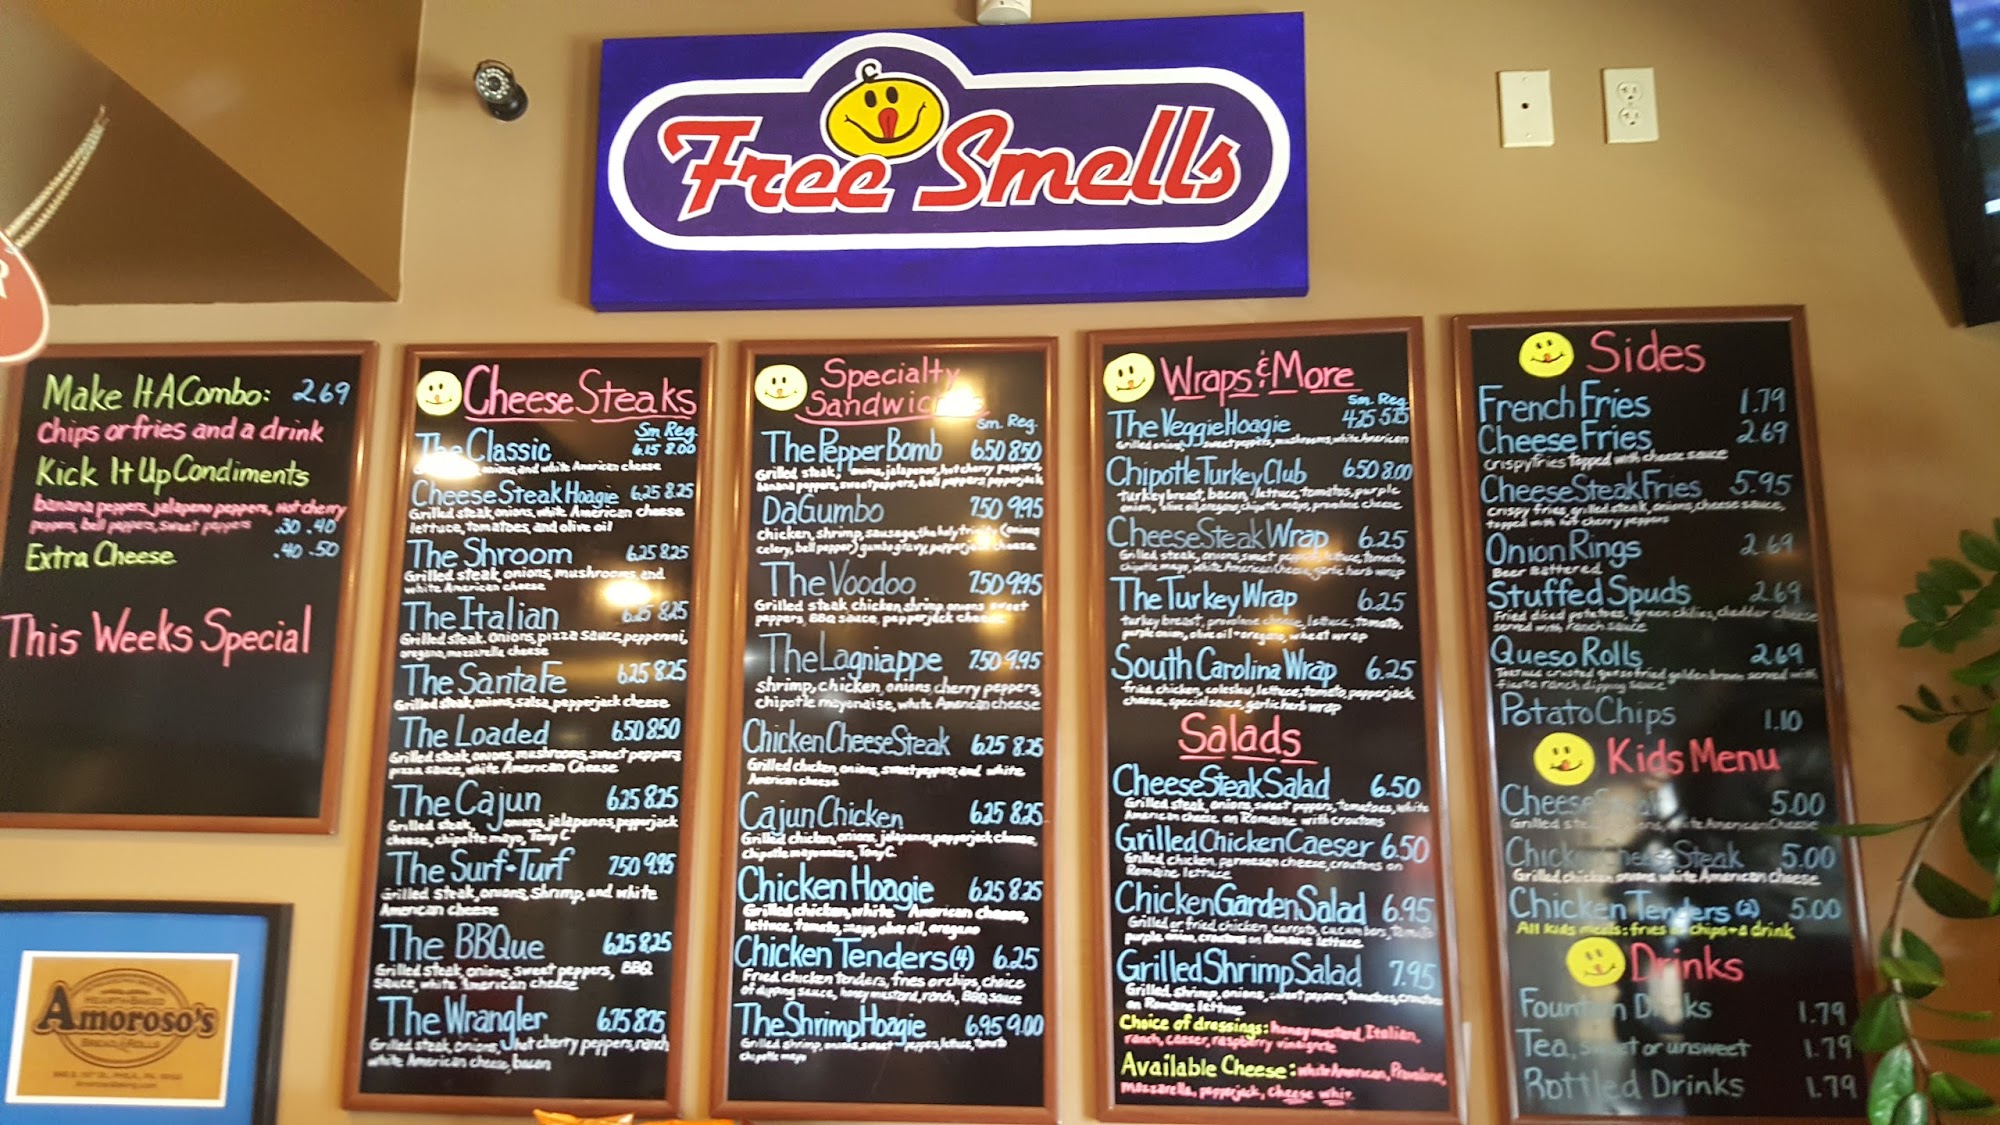 Free Smells
Make It A Combo: 2.69
Chips or fries and a drink
Kick It Up Condiments
banana peppers, jalapeno peppers, hot cherry
peppers, bell peppers, sweet peppers .30 .40
Extra Cheese .40 .50
This Weeks Special
Amoroso's
Hearth-Baked
Bread & Rolls
Cheese Steaks
Sm. Reg.
The Classic 6.15 8.00
onions, and white American cheese
Cheese Steak Hoagie 6.25 8.25
Grilled steak, onions, white American cheese
lettuce, tomatoes, and olive oil
The Shroom 6.25 8.25
Grilled steak, onions, mushrooms, and
white American cheese
The Italian 6.25 8.25
Grilled steak, onions, pizza sauce, pepperoni,
oregano, mozzarella cheese
The Santa Fe 6.25 8.25
Grilled steak, onions, salsa, pepperjack cheese
The Loaded 6.50 8.50
Grilled steak, onions, mushrooms, sweet peppers
pizza sauce, white American Cheese
The Cajun 6.25 8.25
Grilled steak, onions, jalapenos, pepperjack
cheese, chipotle mayo, Tony C'
The Surf-Turf 7.50 9.95
Grilled steak, onions, shrimp, and white
American cheese
The BBQue 6.25 8.25
Grilled steak, onions, sweet peppers, BBQ
sauce, white American cheese
The Wrangler 6.75 8.75
Grilled steak, onions, hot cherry peppers, ranch
white American cheese, bacon
Specialty
Sandwiches
Sm. Reg.
The Pepper Bomb 6.50 8.50
Grilled steak, onions, jalapenos, hot cherry peppers,
banana peppers, sweet peppers, bell peppers pepperjack
DaGumbo 7.50 9.95
chicken, shrimp, sausage, the holy trinity (onions
celery, bell pepper) gumbo gravy, pepperjack cheese
The Voodoo 7.50 9.95
Grilled steak chicken, shrimp, onions sweet
peppers, BBQ sauce, pepperjack cheese
The Lagniappe 7.50 9.95
shrimp, chicken, onions, cherry peppers,
chipotle mayonaise, white American cheese
Chicken Cheese Steak 6.25 8.25
Grilled chicken, onions, sweet peppers and white
American cheese
Cajun Chicken 6.25 8.25
Grilled chicken, onions, jalapenos, pepperjack cheese,
chipotle mayonnaise, Tony C.
Chicken Hoagie 6.25 8.25
Grilled chicken, white American cheese,
lettuce, tomato, mayo, olive oil, oregano
Chicken Tenders (4) 6.25
Fried chicken tenders, fries or chips, choice
of dipping sauce, honey mustard, ranch, BBQ sauce
The Shrimp Hoagie 6.95 9.00
Grilled shrimp, onions, sweet peppers, lettuce, tomato
chipotle mayo
Wraps & More
Sm. Reg.
The Veggie Hoagie 4.25 5.75
Grilled onions, sweet peppers, mushrooms, white American
Chipotle Turkey Club 6.50 8.00
turkey breast, bacon, lettuce, tomatos, purple
onion, olive oil, oregano, chipotle mayo, provolone cheese
Cheese Steak Wrap 6.25
Grilled steak, onions, sweet peppers, lettuce, tomato,
chipotle mayo, white American Cheese, garlic herb wrap
The Turkey Wrap 6.25
turkey breast, provolone cheese, lettuce, tomato,
purple onion, olive oil + oregano, wheat wrap
South Carolina Wrap 6.25
fried chicken, coleslaw, lettuce, tomato, pepperjack
cheese, special sauce, garlic herb wrap
Salads
Cheese Steak Salad 6.50
Grilled steak, onions, sweet peppers, tomatoes, white
American cheese on Romaine with croutons
Grilled Chicken Caeser 6.50
Grilled chicken, parmesan cheese, croutons on
Romaine lettuce
Chicken Garden Salad 6.95
Grilled or fried chicken, carrots, cucumbers, tomato
purple onion, croutons on Romaine lettuce
Grilled Shrimp Salad 7.95
Grilled shrimp, onions, sweet peppers, tomatoes, croutons
on Romaine lettuce
Choice of dressings: honey mustard, Italian,
ranch, caeser, raspberry vinaigrette
Available Cheese: white American, Provolone,
mozzarella, pepperjack, cheese whiz
Sides
French Fries 1.79
Cheese Fries 2.69
crispy fries topped with cheese sauce
Cheese Steak Fries 5.95
crispy fries, grilled steak, onions, cheese sauce,
topped with hot cherry peppers
Onion Rings 2.69
Beer Battered
Stuffed Spuds 2.69
Fried diced potatoes, green chilies, cheddar cheese
served with ranch sauce
Queso Rolls 2.69
Tortilla crusted queso fried golden brown served with
fiesta ranch dipping sauce
Potato Chips 1.10
Kids Menu
Cheese Steak 5.00
Grilled steak, onions, white American Cheese
Chicken Cheese Steak 5.00
Grilled chicken onions white American cheese
Chicken Tenders (2) 5.00
All kids meals: fries or chips + a drink
Drinks
Fountain Drinks 1.79
Tea, sweet or unsweet 1.79
Bottled Drinks 1.79